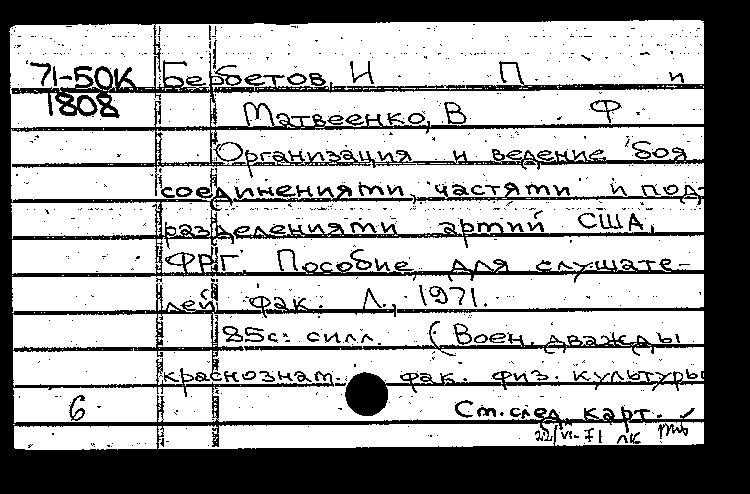 71-50К Бербетов, И П и
1808 Матвеенко, В Ф
Организация и ведение боя
соединениями, частями и под-
разделениями артий США,
ФРГ. Пособие для слушате-
лей фак. Л., 1971.
85с: силл. (Воен. дважды
краснознам. фак. физ. культуры
6 Ст. след. карт. ✓
22/VI-71 ЛК